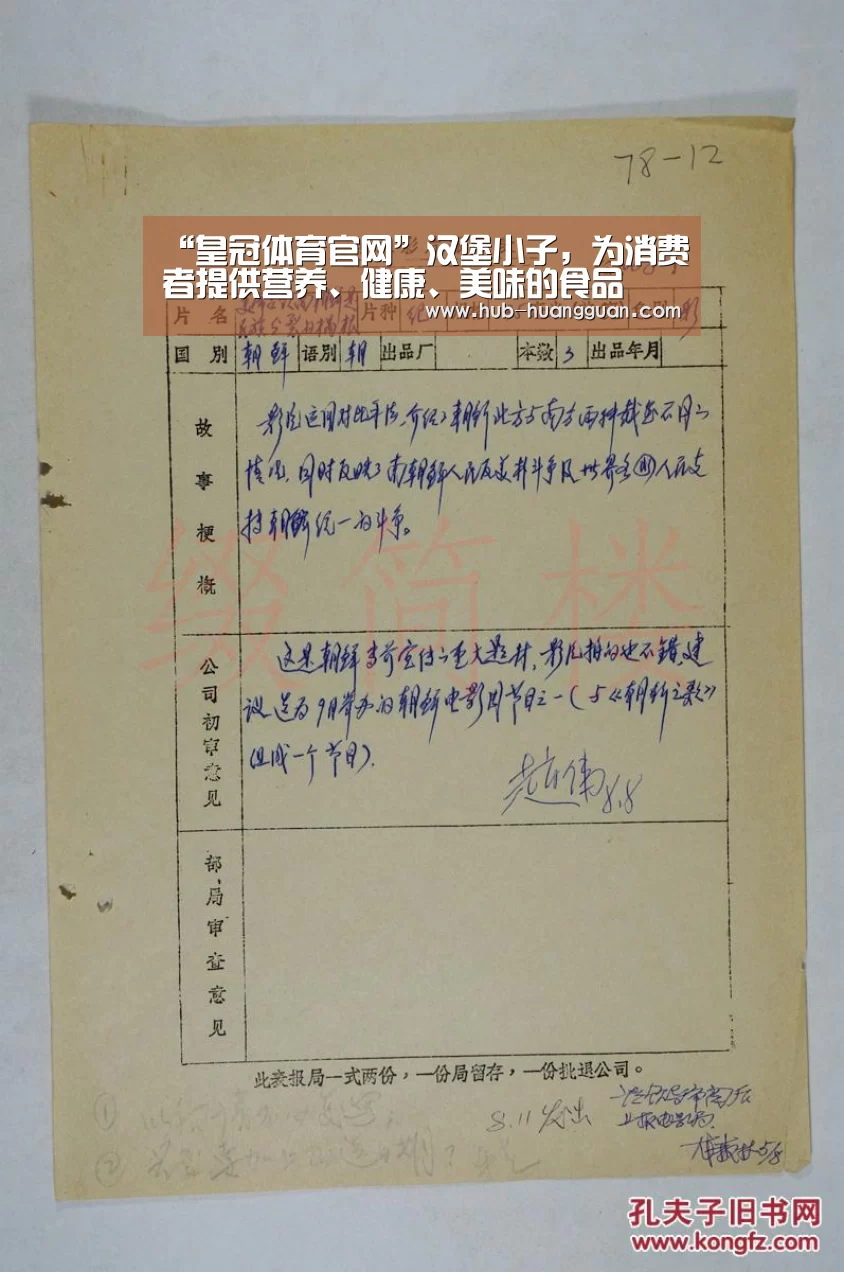 78-12
“皇冠体育官网”汉堡小子，为消费
者提供营养、健康、美味的食品
www.hub-huangguan.com
片 名 片种 纪 彩
国 别 朝鲜 语别 朝 出品厂 本数 3 出品年月
故事梗概
影片运用对比手法，介绍了朝鲜北方与南方两种截然不同的
情况，同时反映了南朝鲜人民反美斗争及世界各国人民支
持朝鲜统一的斗争。
公司初审意见
这是朝鲜当前宣传的重大题材，影片拍的也不错，建
议选为9月举办的朝鲜电影周节目之一（与《朝鲜之歌》
组成一个节目）。
赵伟 8.8
部局审查意见
此表报局一式两份，一份局留存，一份批退公司。
8.11发出
①
②
缀简楼
孔夫子旧书网
www.kongfz.com